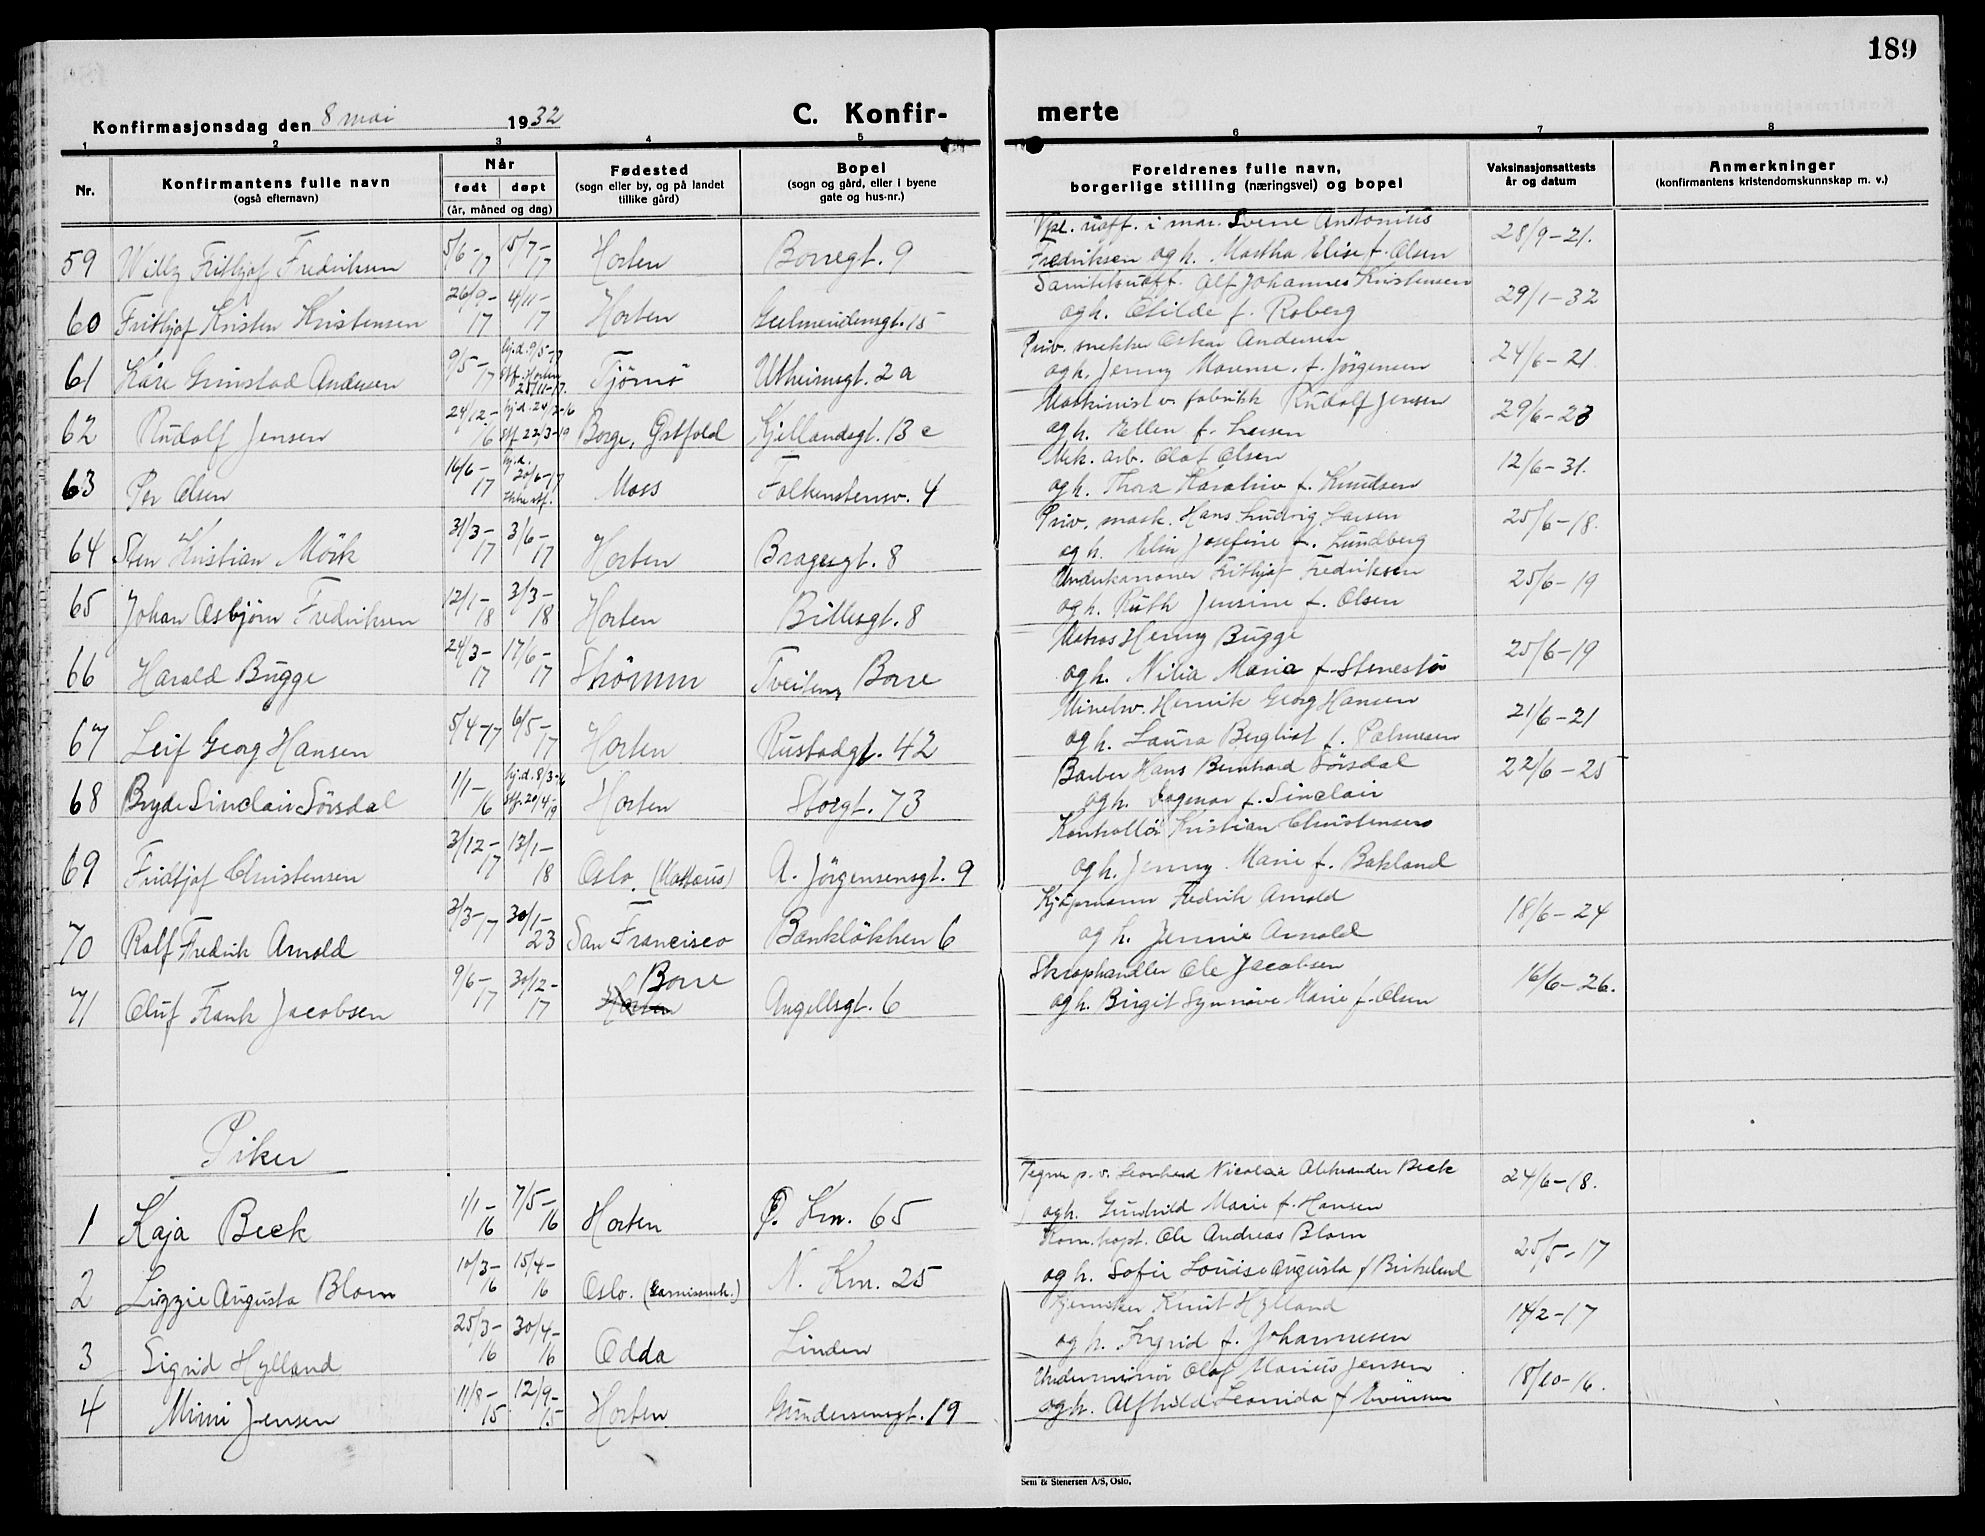 189
Konfirmasjonsdag den 8 mai 1932 C. Konfir- merte
1 2 3 4 5 6 7 8
Nr. Konfirmantens fulle navn (også efternavn) Når født døpt (år, måned og dag) Fødested (sogn eller by, og på landet tillike gård) Bopel (sogn og gård, eller i byene gate og hus-nr.) Foreldrenes fulle navn, borgerlige stilling (næringsvei) og bopel Vaksinasjonsattests år og datum Anmerkninger (konfirmantens kristendomskunnskap m. v.)
59 Willy Frithjof Fredriksen 5/6-17 15/7-17 Horten Borregt. 9 uoff. i mar. Sverre Antonius Fredriksen og h. Martha Elise f. Olsen 28/9-21.
60 Frithjof Kristen Kristensen 26/9-17 4/11-17 Horten Geelmeidensgt. 15 Sanitetsuoff. Alf Johannes Kristensen og h. f. Roberg 29/1-32
61 Kåre Grinstad Andersen 9/5-17 hj.d. 9/5-17 Stf. Horten 25/11-17. Tjømø Utheimsgt. 2a Priv. snekker Oskar Andersen og h. Jenny Marense. f. Jørgensen 24/6-21
62 Rudolf Jensen 24/12-16 hj.d. 24/12-16 Stf. 22/3-19 Borge, Østfold Kjellandsgt. 13 c Maskinist v. fabrikk Rudolf Jensen og h. Ellen f. Larsen 29/6-23
63 Per Olsen 16/6-17 hj.d. 20/6-17 Ikke stf. Moss Falkenstensv. 4 Mek. arb. Olaf Olsen og h. Thora f. Knudsen 12/6-31.
64 Sten Kristian Mörk 31/3-17 3/6-17 Horten Bragesgt. 8 Priv. mask. Hans Ludvig Larsen og h. Elin Josefine f. Lundberg 25/6-18.
65 Johan Asbjørn Fredriksen 12/1-18 3/3-18 Horten Billesgt. 8 Underkanoner Frithjof Fredriksen og h. Ruth Jensine f. Olsen 25/6-19
66 Harald Bugge 24/3-17 17/6-17 Strömm Tveiten, Borre Matros Henry Bugge og h. Nilia Maria f. Stenestø 25/6-19
67 Leif Georg Hansen 5/4-17 6/5-17 Horten Rustadgt. 42 Henrik Georg Hansen og h. Laura Bergliot f. Palmesen 21/6-21
68 Bryde Sinclair Sörsdal 1/1-16 hj.d. 8/3-16 Stf. 20/4-19 Horten Storgt. 73 Barber Hans Bernhard Sörsdal og h. Dagmar f. Sinclair 22/6-25
69 Fridtjof Christensen 3/12-17 13/1-18 Oslo. (Mattæus) A. Jørgensensgt. 9 Kontrollør Kristian Christensen og h. Jenny Marie f. Bakland
70 Rolf Fredrik Arnold 3/3-17 30/1-23 San Francisco Bankløkken 6 Kjøpmann Fredrik Arnold og h. Jennie Arnold 18/6-24
71 Oluf Frank Jacobsen 9/6-17 30/12-17 Borre Horten Angellsgt. 6 Skraphandler Ole Jacobsen og h. Birgit Synnøve Marie f. Olsen 16/6-26.
Piker
1 Kaja Beck 1/1-16 7/5-16 Horten Ø. Km. 65 Tegner p. v. Leonhard Nicolai Aleksander Beck og h. Gunhild Marie f. Hansen 24/6-18.
2 Lizzie Augusta Blom 10/3-16 15/4-16 Oslo. (Garnisonsk.) N. Km. 25 Kom. kapt. Ole Andreas Blom og h. Sofie Louise Augusta f Birkeland 25/5-17
3 Sigrid Hylland 25/3-16 30/4-16 Odda Linden Kjemiker Knut Hylland og h. Ingrid f. Johannesen 14/2-17
4 Mimi Jensen 11/8-15 12/9-15 Horten Gundersensgt. 19 Underminør Olaf Marius Jensen og h. Alfhild Leonida f Evensen 18/10-16.
Sem & Stenersen A/S, Oslo.